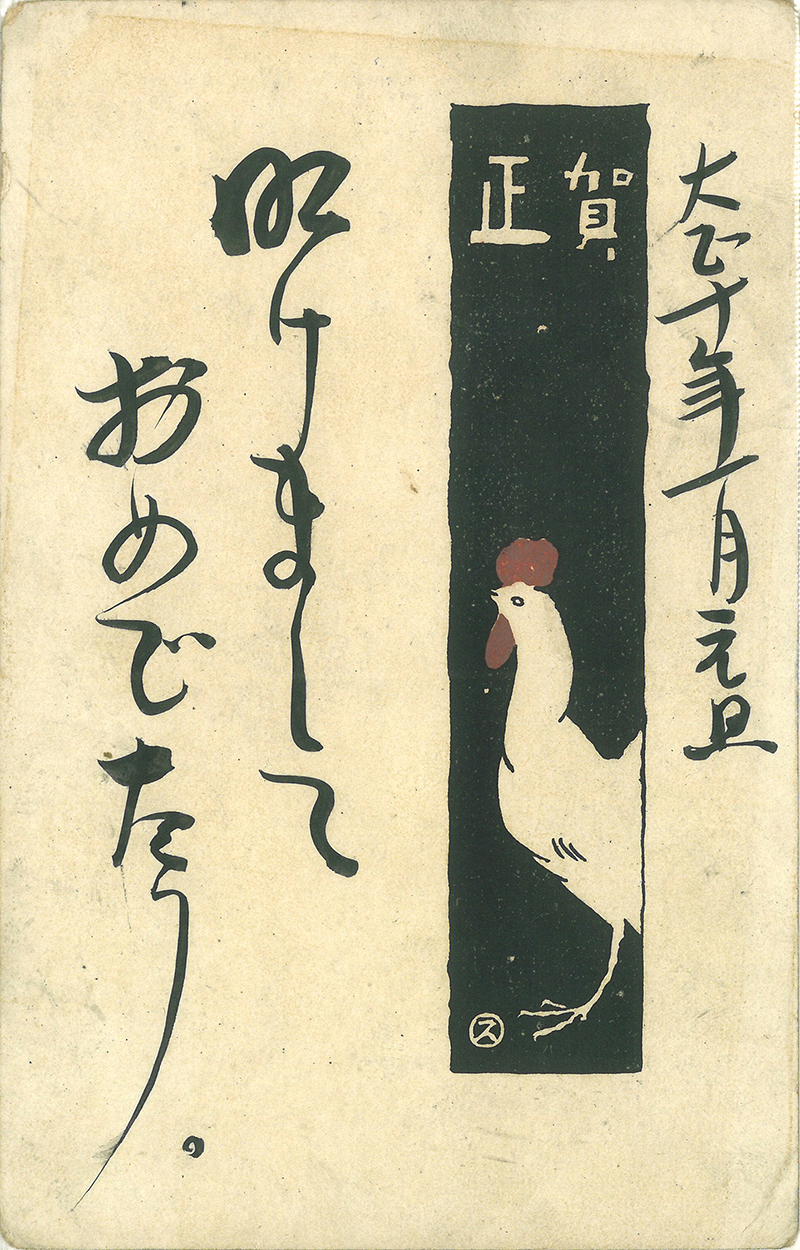 大正十年一月元旦
賀正
ス
明けまして
おめでたう。